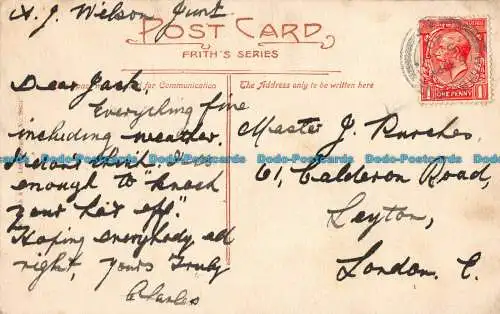 A. J. Wilson Junr
POST CARD
FRITH'S SERIES
for Communication
The Address only to be written here
ONE PENNY
Dear Jack
Everything fine
including weather.
I don't think
enough to "knock
your hat off".
Hoping everybody all
right, yours Truly
Charles
Master J. Purches
61, Calderon Road,
Leyton,
London. E.
Dodo-Postcards Dodo-Postcards Dodo-Postcards Dodo-Postcards Dodo-Postcards